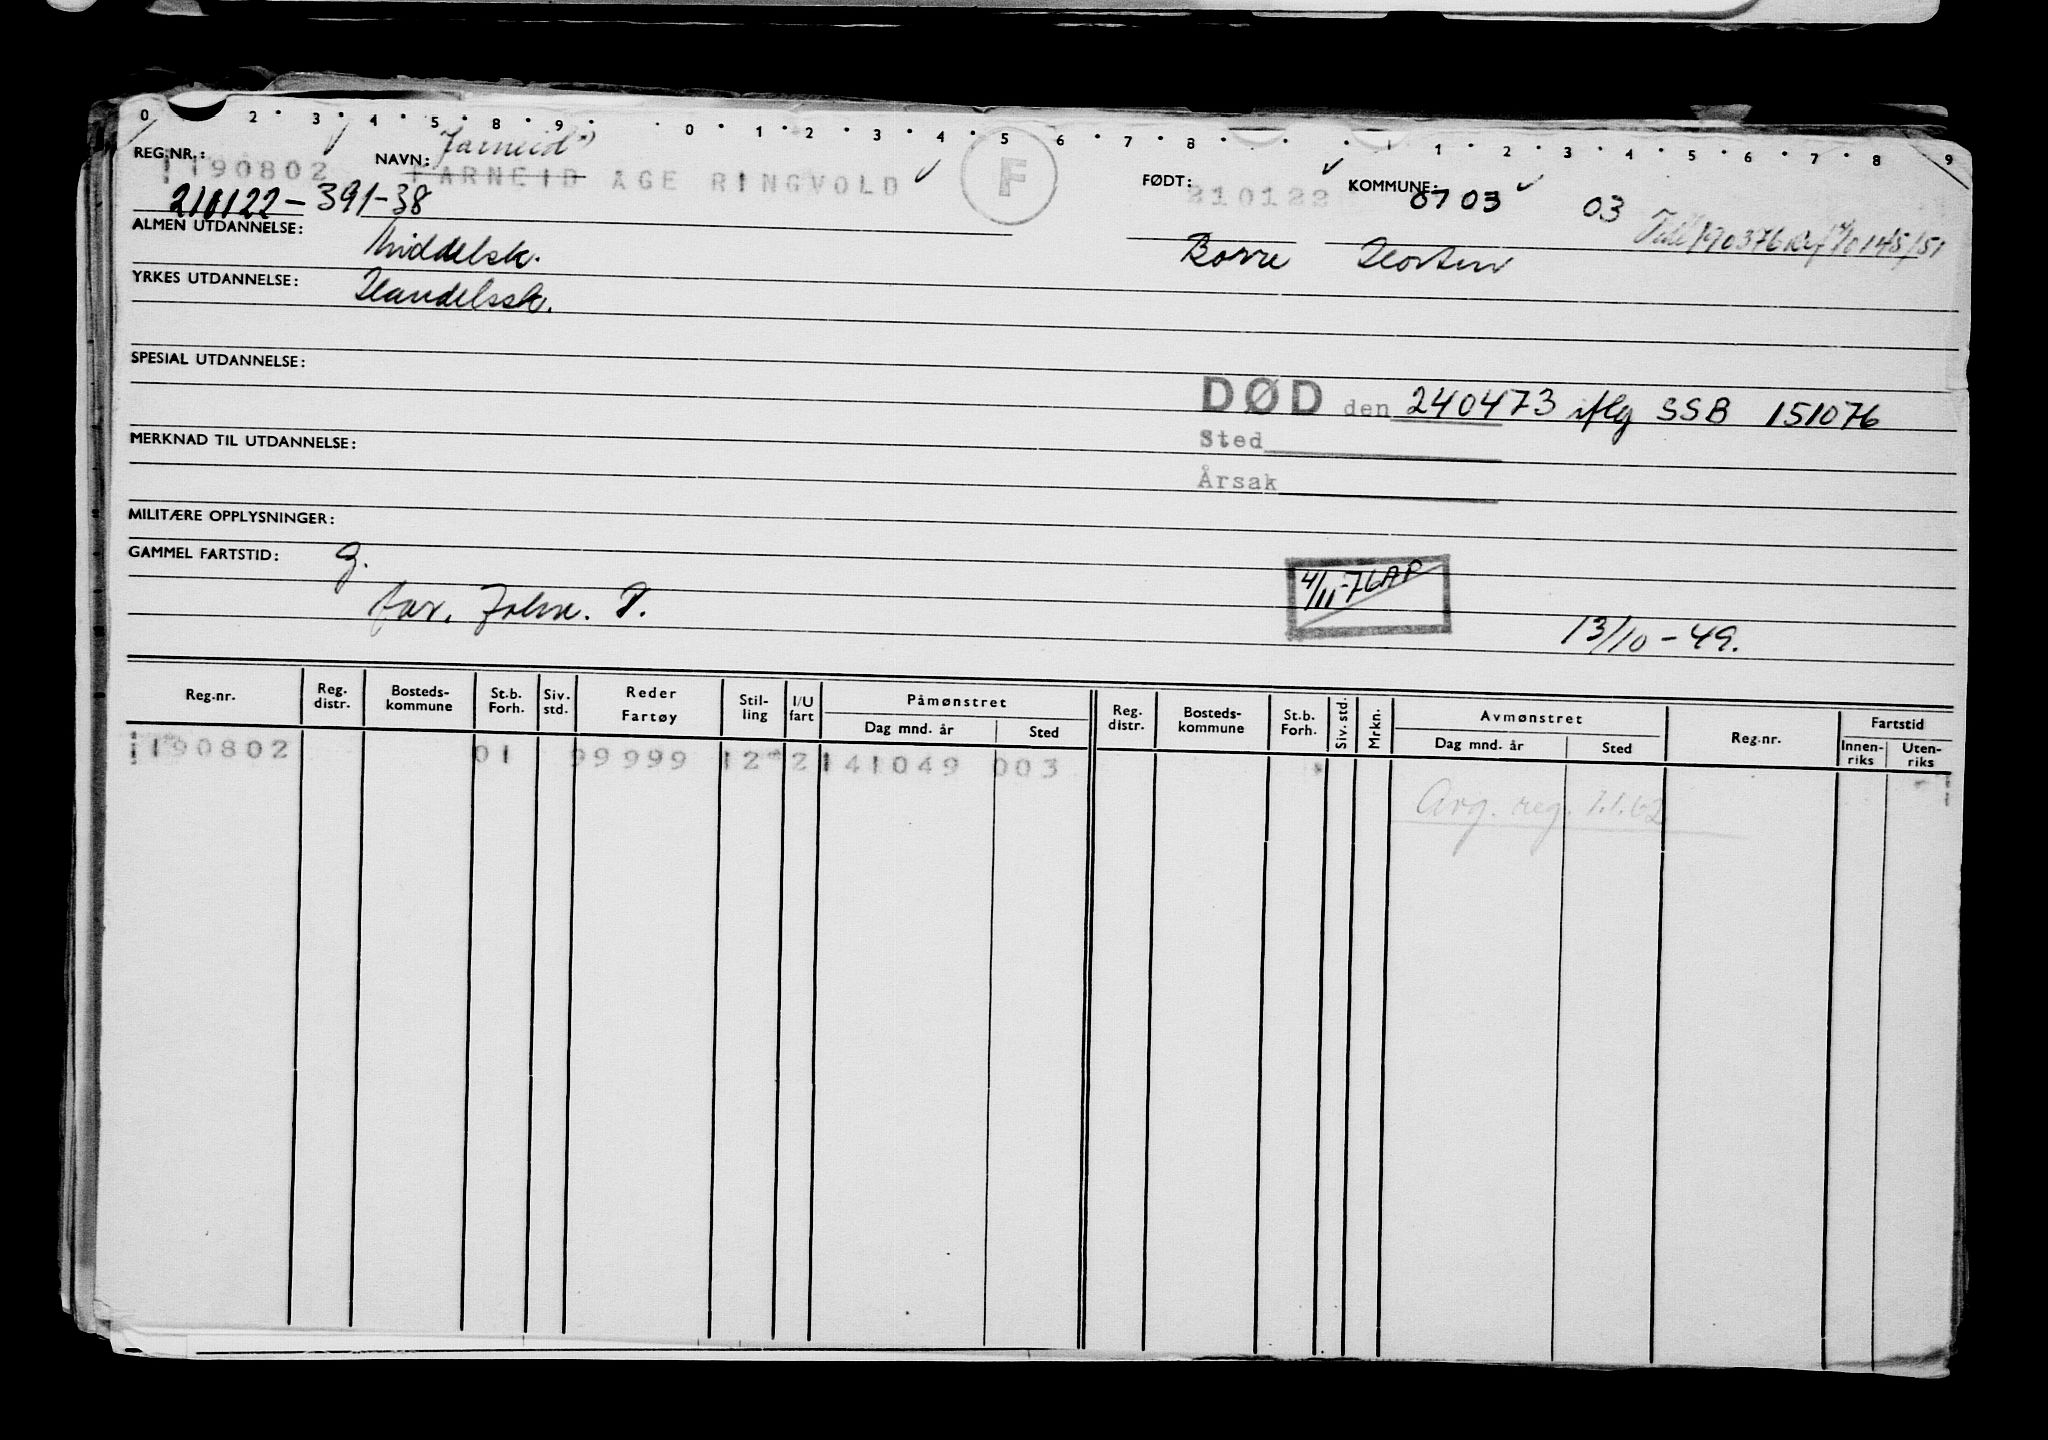 0 2 3 4 5 8 9 0 1 2 3 4 5 6 7 8 1 2 3 4 5 6 7 8 9
REG.NR.: 190802 NAVN: Jarneid ARNEID AGE RINGVOLD F FØDT: 210122 KOMMUNE: 0703 03
210122-391-38
ALMEN UTDANNELSE: Middelsk. Borre Horten
YRKES UTDANNELSE: Handelssk.
SPESIAL UTDANNELSE:
DØD den 240473 iflg SSB 151076
MERKNAD TIL UTDANNELSE: Sted
Årsak
MILITÆRE OPPLYSNINGER:
GAMMEL FARTSTID: g.
4/11-76 AP
13/10-49.
Reg.nr. Reg. distr. Bosteds- kommune St.b. Forh. Siv. std. Reder Fartøy Stil- ling I/U fart Påmønstret Dag mnd. år Sted Reg. distr. Bosteds- kommune St.b. Forh. Siv. std. Mrkn. Avmønstret Dag mnd. år Sted Reg.nr. Fartstid Innen- riks Uten- riks
190802 01 99999 12 2 141049 003
Avg. reg. 1.1.62